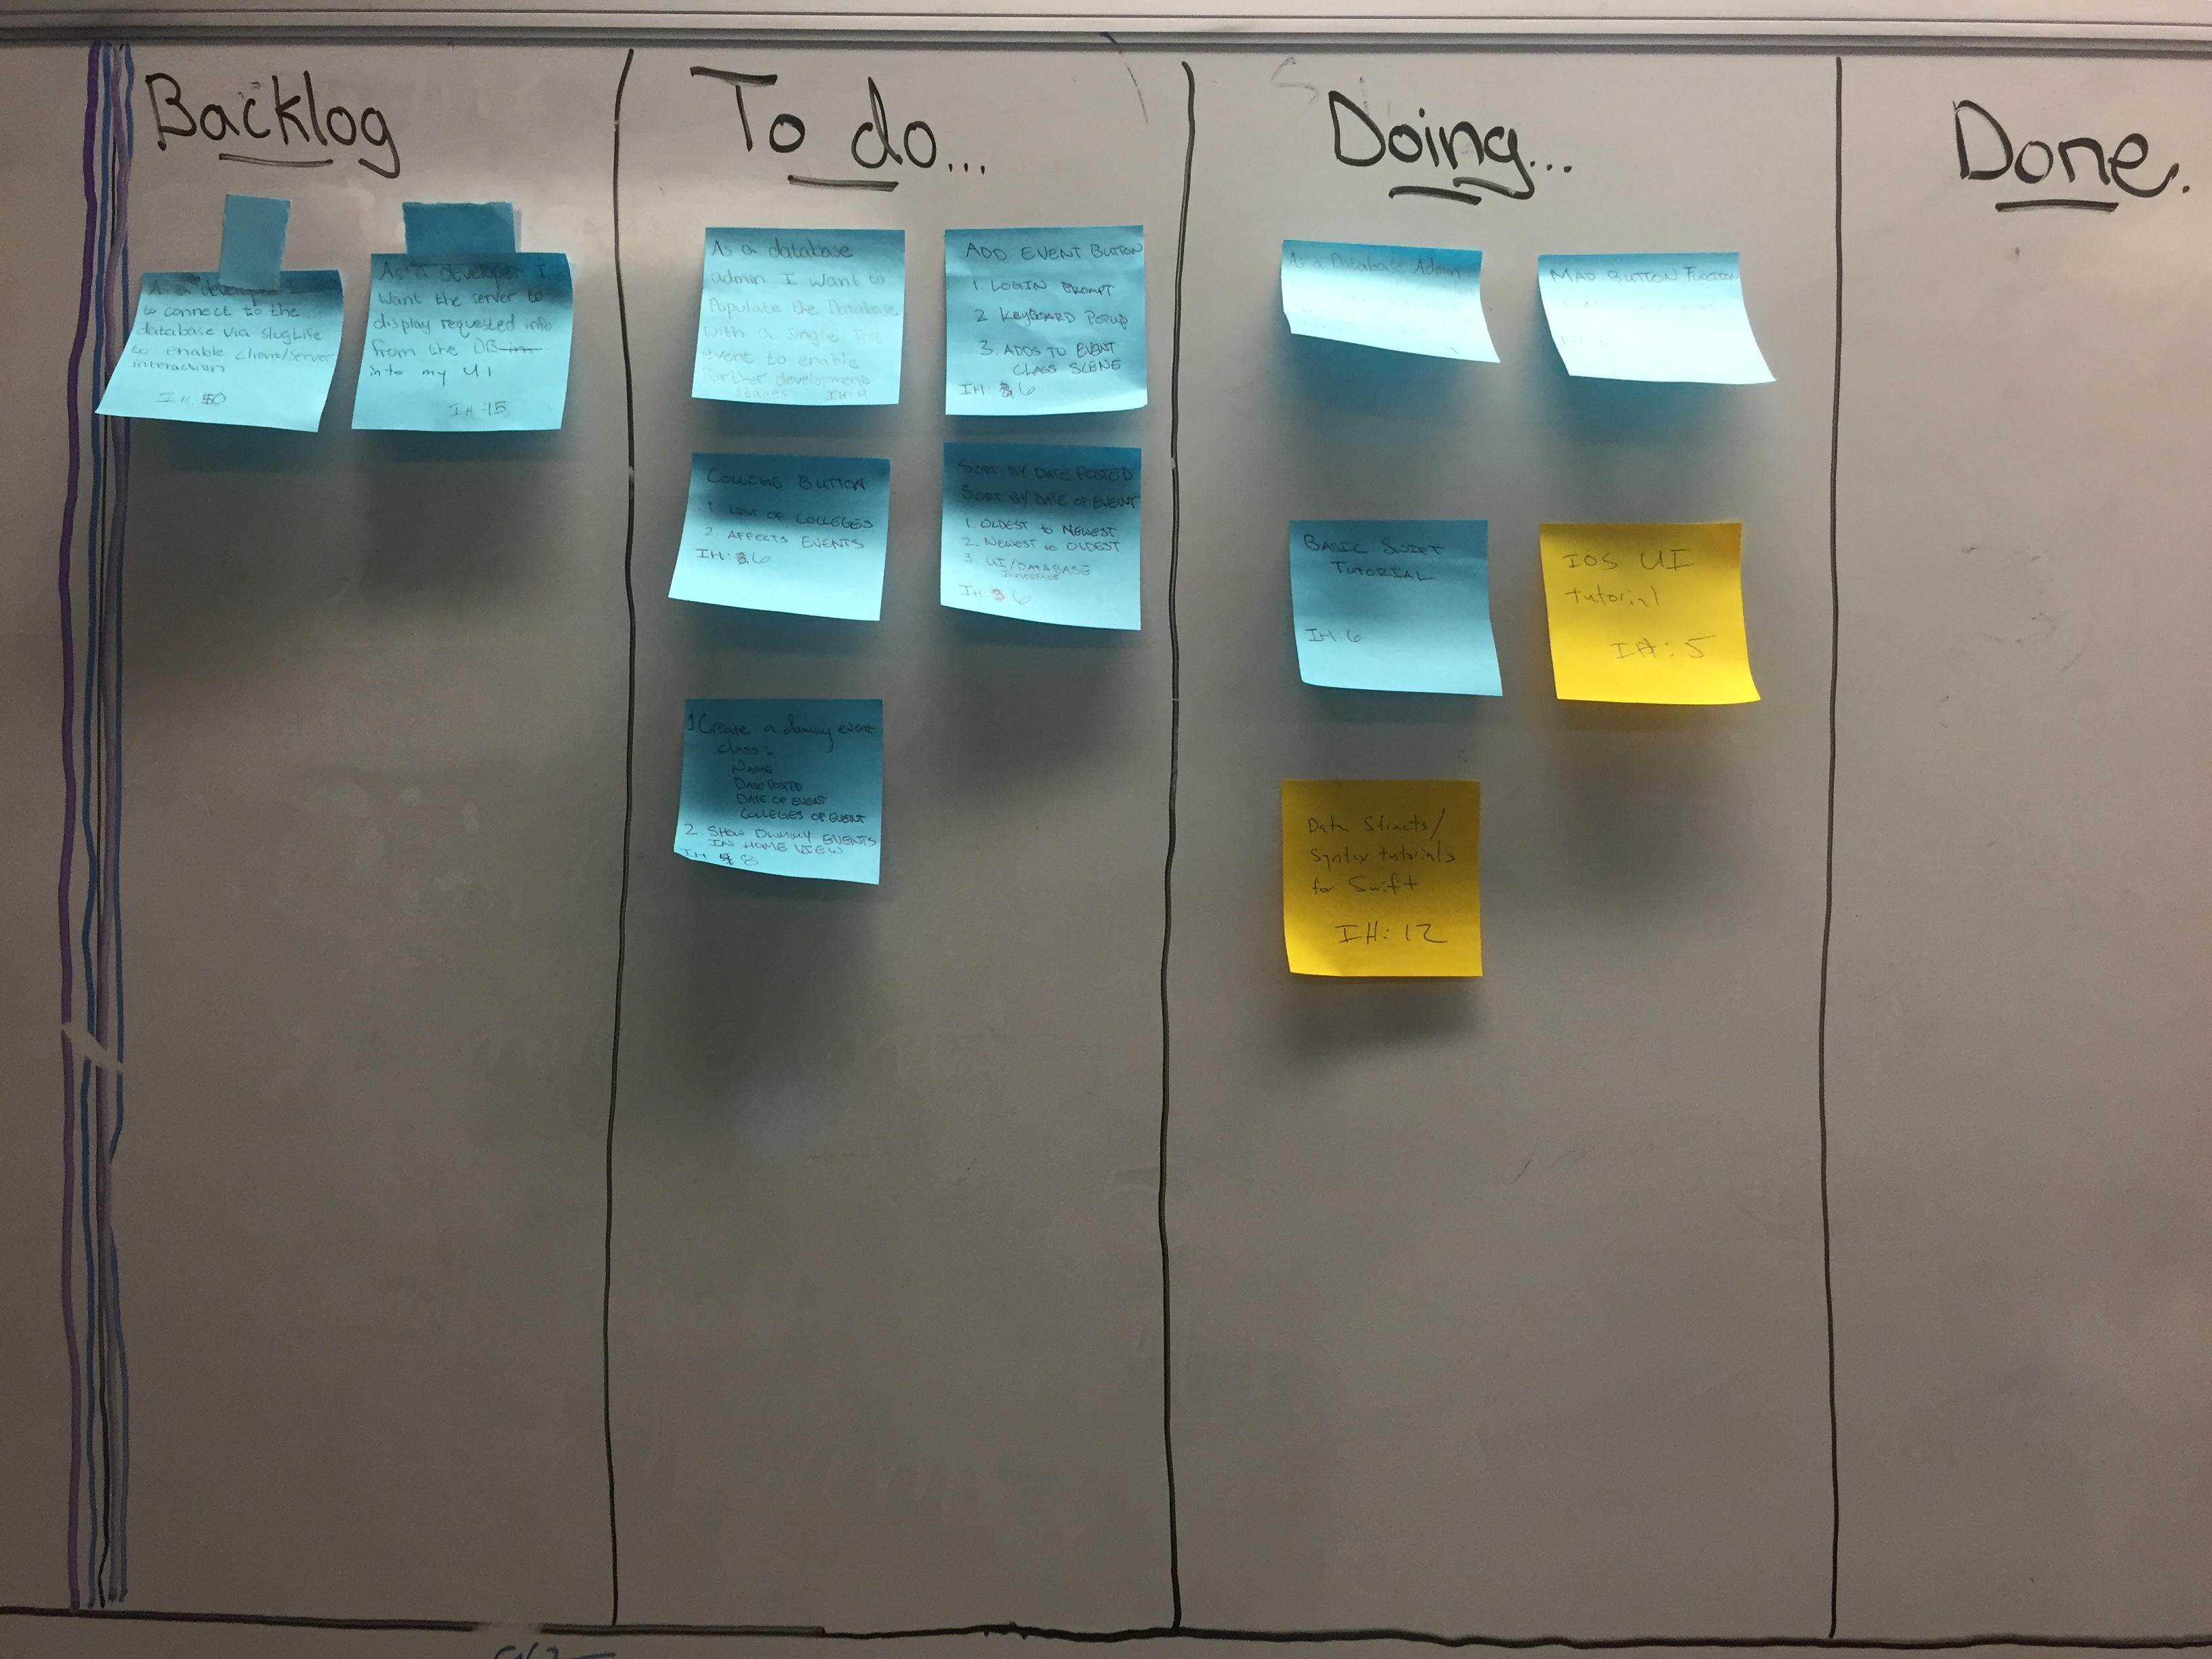 Backlog
To do...
Doing...
Done.
As a
to connect to the
database via slugLife
to enable client/server
interaction
IH
As a developer I
want the server to
display requested info
from the DB in
into my UI
IH: 15
As a database
admin I want to
Populate the Database
with a single Test
event to enable
further development
stages IH: 4
ADD EVENT BUTTON
1 LOGIN PROMPT
2 KEYBOARD POPUP
3. ADDS TO EVENT
CLASS SCENE
IH: 6
COLLEGE BUTTON
1 LIST OF COLLEGES
2. AFFECTS EVENTS
IH: 6
SORT BY DATE POSTED
SORT BY DATE OF EVENT
1 OLDEST to NEWEST
2. NEWEST to OLDEST
3. UI/DATABASE
IH 6
1 Create a dummy event
class:
NAME
DATE POSTED
DATE OF EVENT
COLLEGES OF EVENT
2. SHOW DUMMY EVENTS
IN HOME VIEW
IH 8
As a Database Admin
MAP BUTTON
BASIC SWIFT
TUTORIAL
IH 6
IOS UI
tutorial
IH: 5
Data Structs/
Syntax tutorials
for Swift
IH: 12